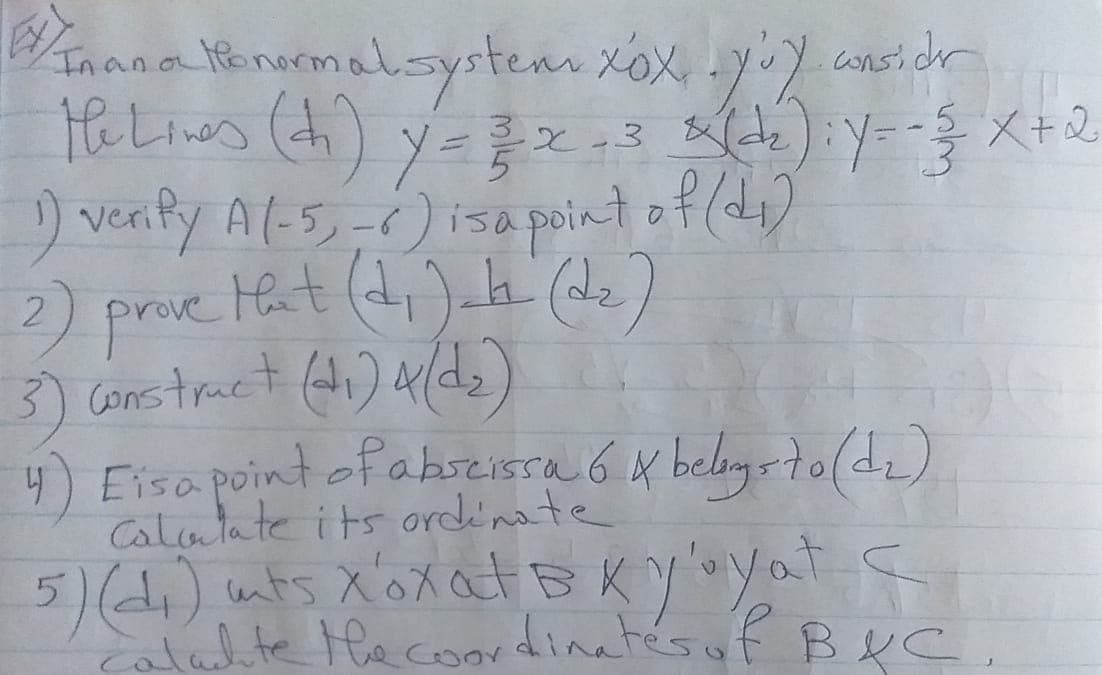 Ex) In an orthonormal system x'ox, y'oy consider
the Lines (d1) y = 3/5 x - 3 & (d2) : y = - 5/3 x + 2
1) verify A(-5, -6) is a point of (d1)
2) prove that (d1) ⊥ (d2)
3) construct (d1) & (d2)
4) E is a point of abscissa 6 & belongs to (d2)
Calculate its ordinate
5) (d1) cuts x'ox at B & y'oy at C
calculate the coordinates of B & C.